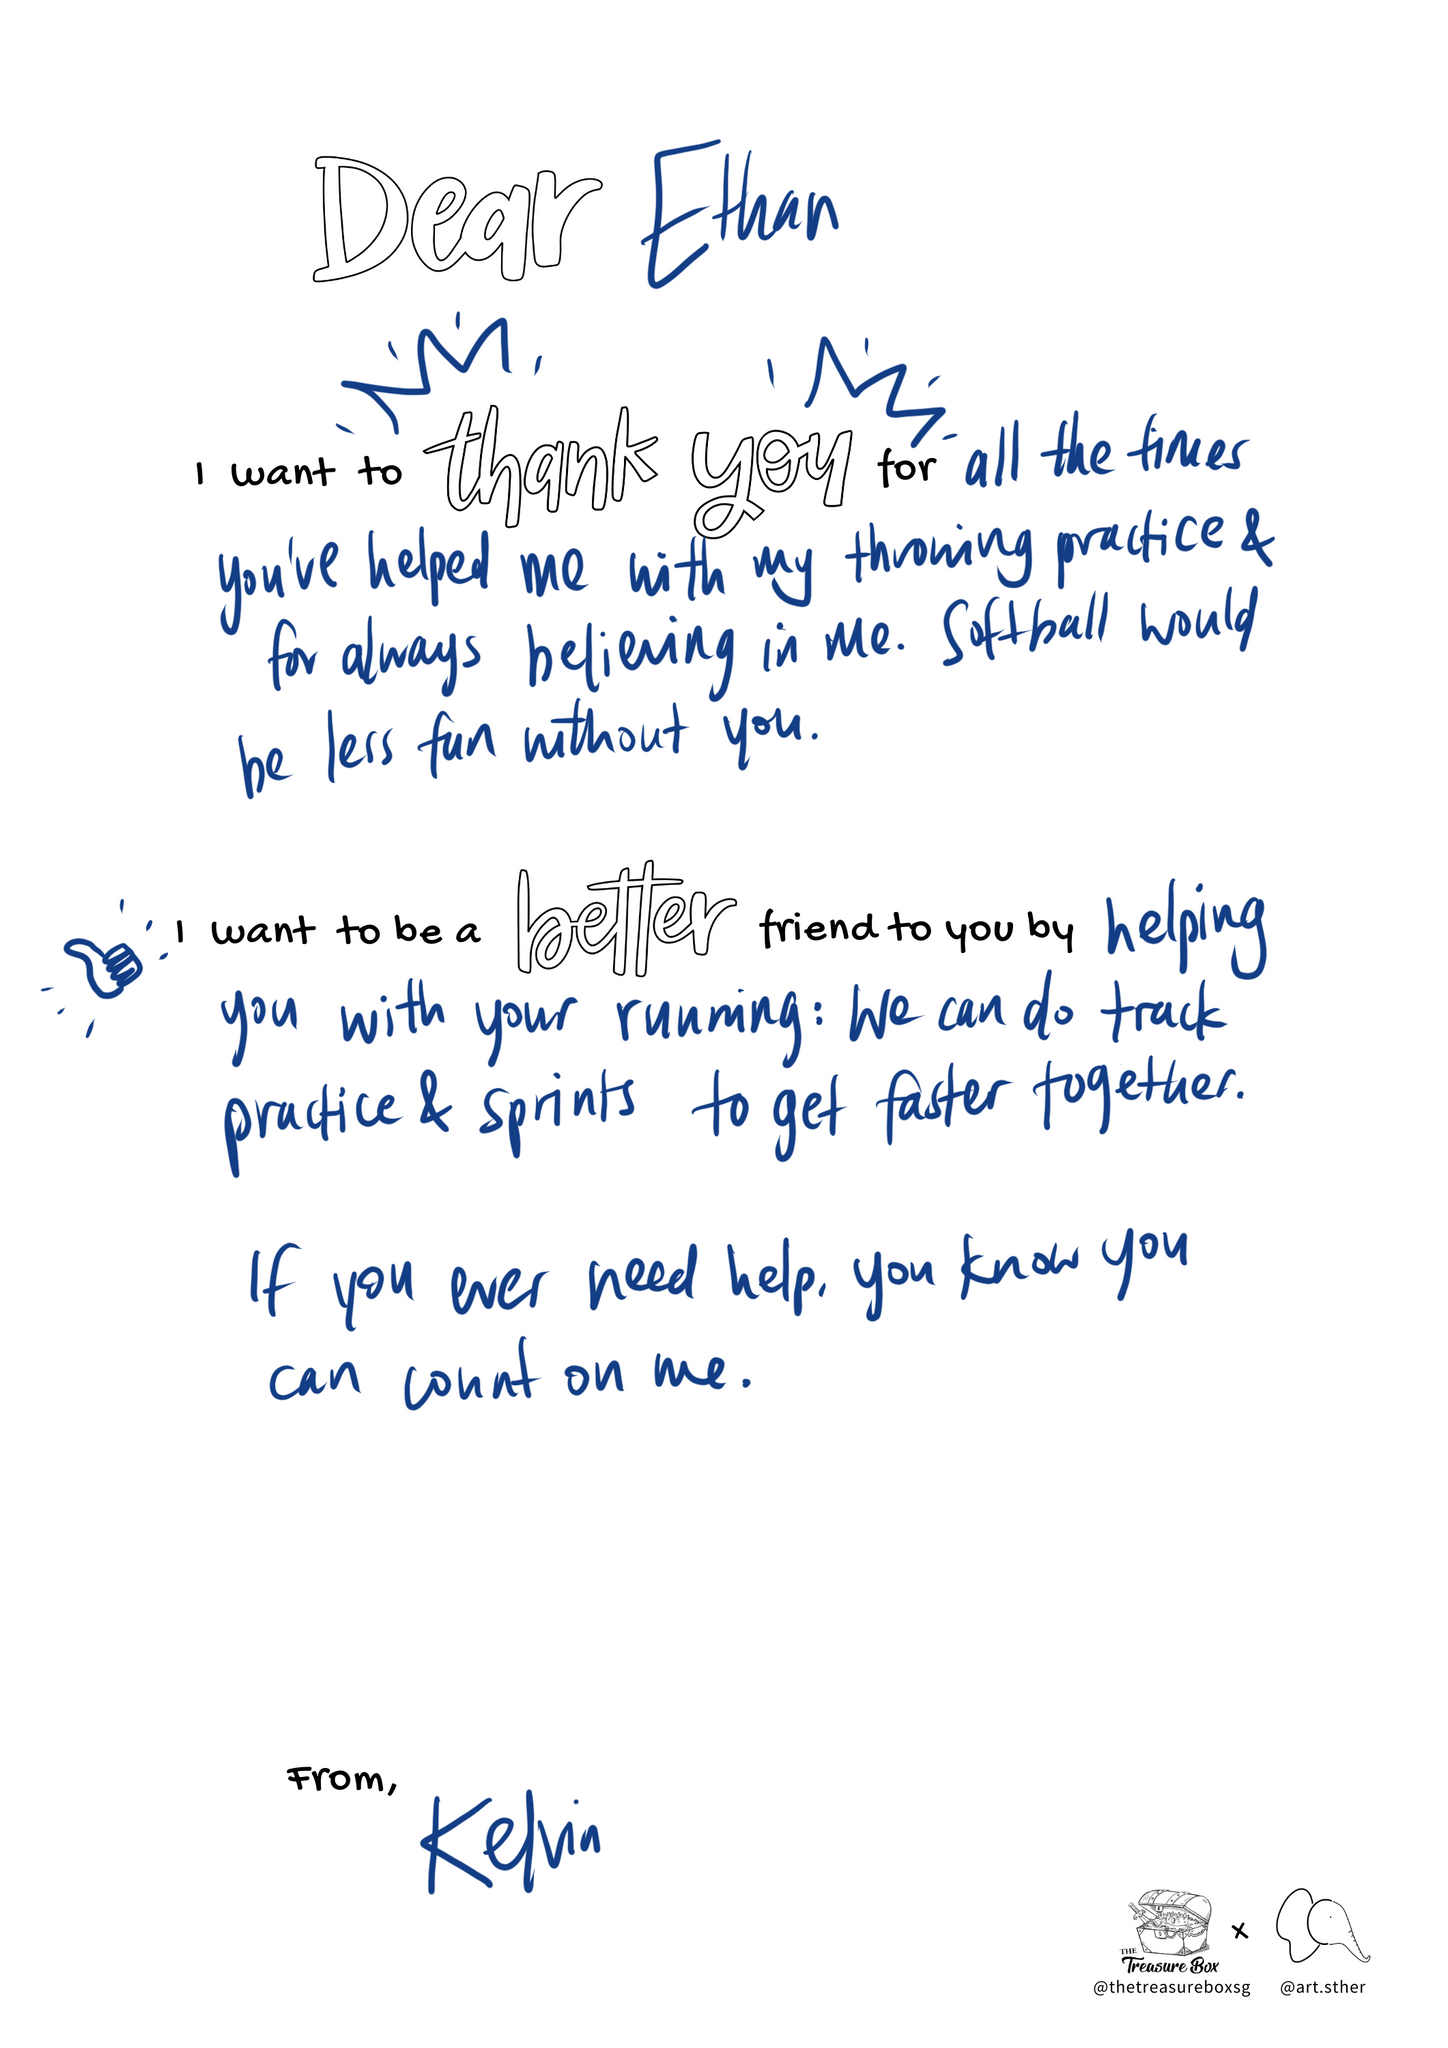 Dear Ethan
I want to thank you for all the times
you've helped me with my throwing practice &
for always believing in me. Softball would
be less fun without you.
I want to be a better friend to you by helping
you with your running: We can do track
practice & sprints to get faster together.
If you ever need help, you know you
can count on me.
From,
Kelvin
x
THE
Treasure Box
@thetreasureboxsg @art.sther